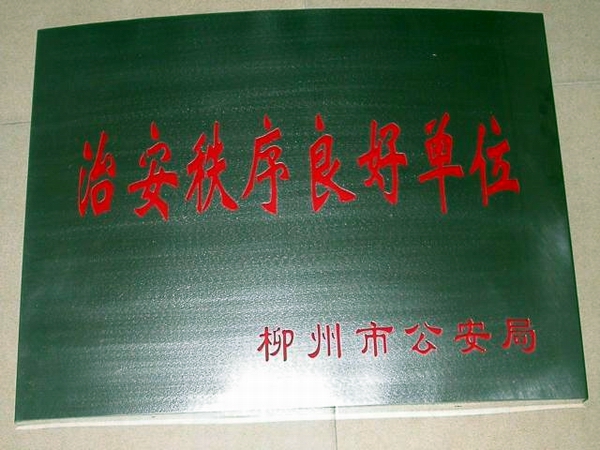 治安秩序良好单位
柳州市公安局